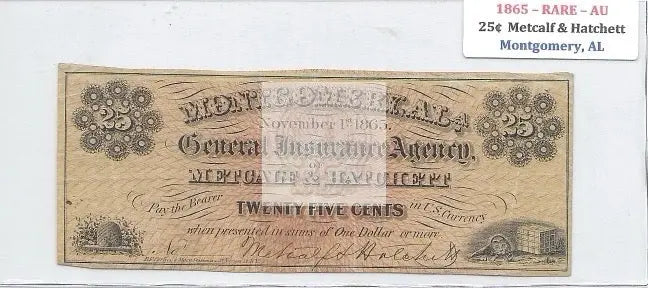 1865 – RARE – AU
25¢ Metcalf & Hatchett
Montgomery, AL
MONTGOMERY, ALA.
25
25
November 1st 1865.
General Insurance Agency,
OF
METCALF & HATCHETT
Pay the Bearer
TWENTY FIVE CENTS
in U.S. Currency
when presented in sums of One Dollar or more
No
Metcalf & Hatchett